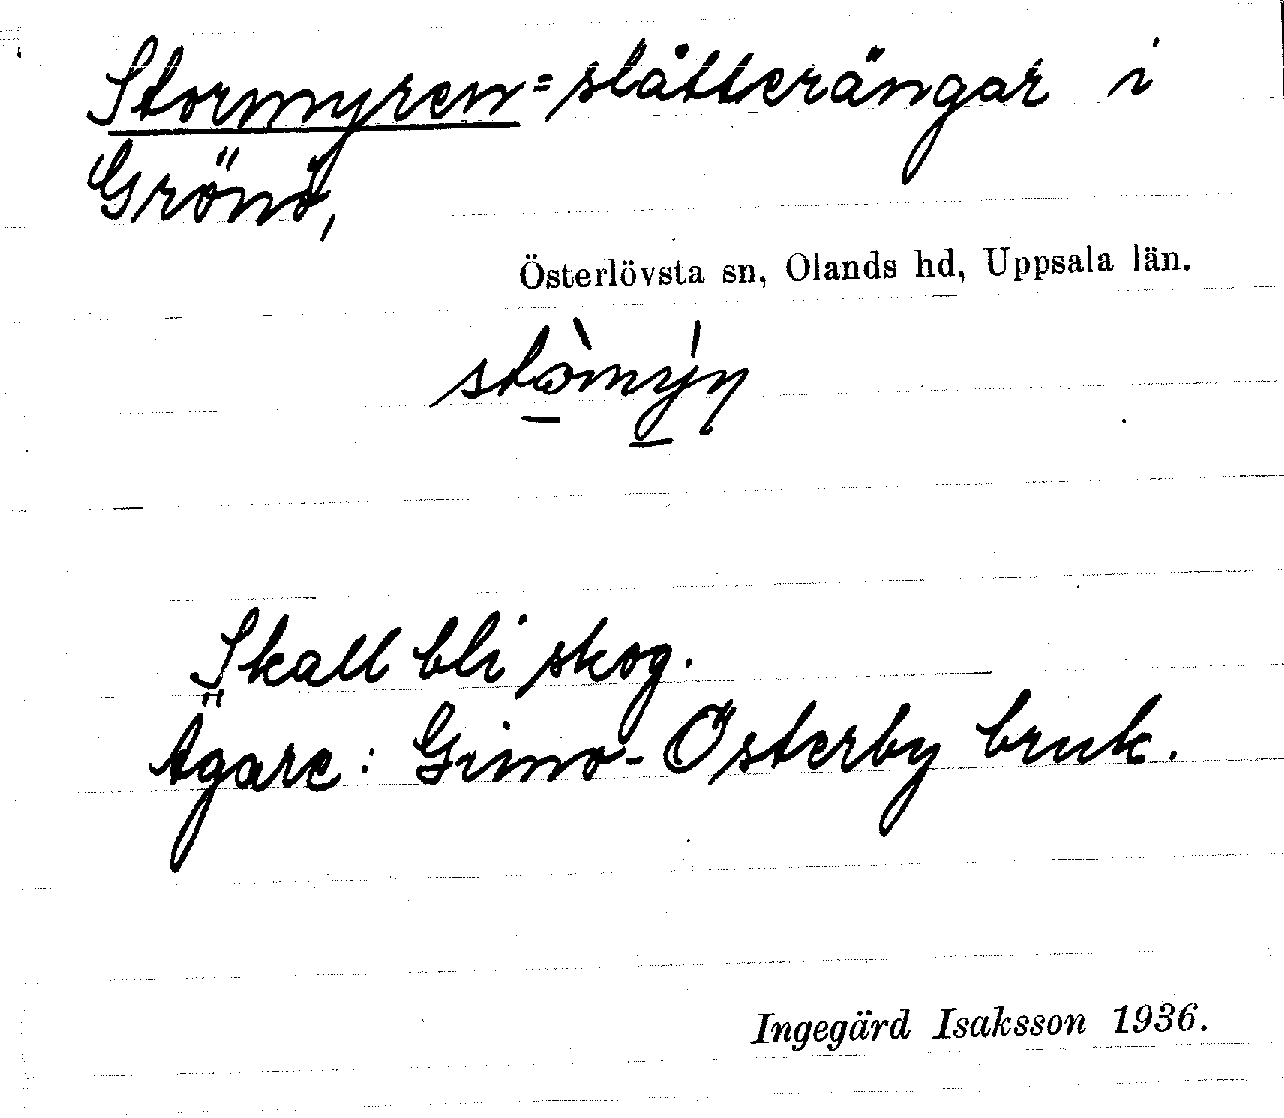 Stormyren = slåtterängar i
Grönö,
Österlövsta sn, Olands hd, Uppsala län.
Skall bli skog.
Ägare: Gimo-Österby bruk.
Ingegärd Isaksson 1936.